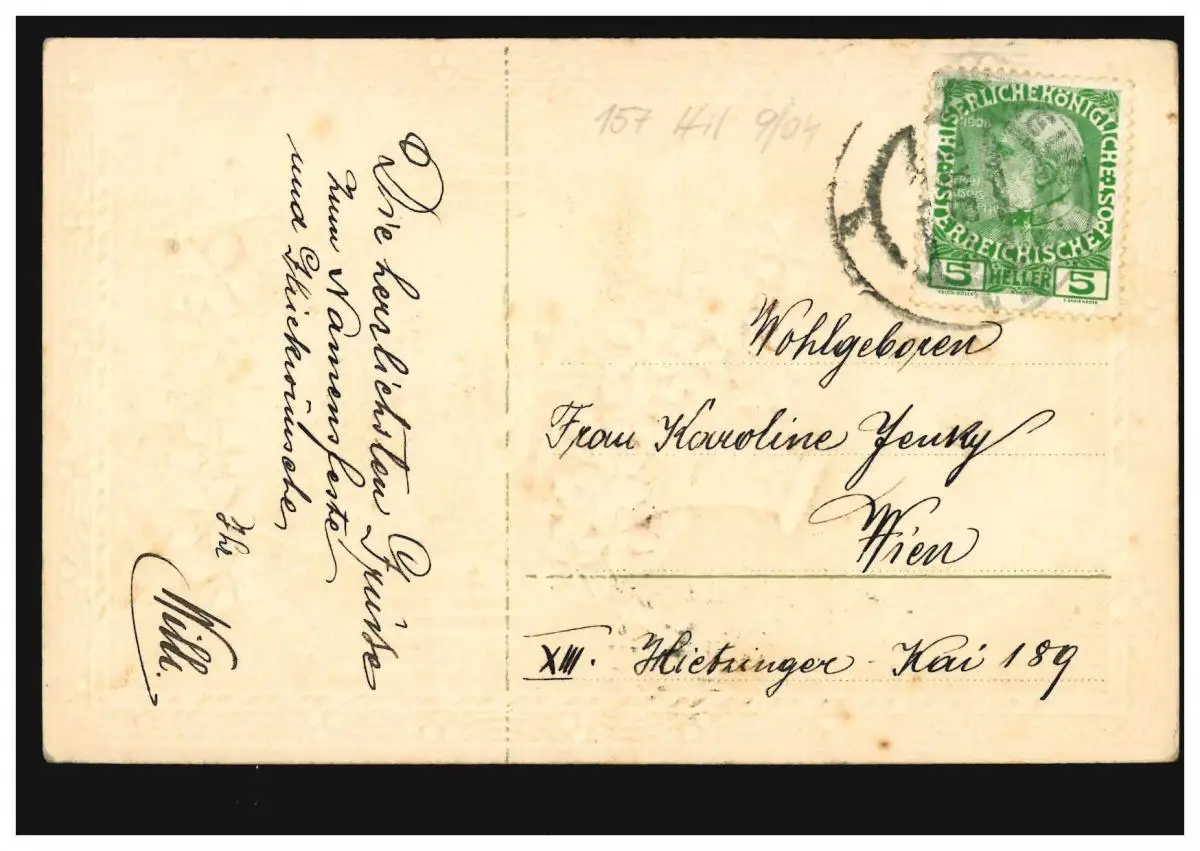 157 Hil 9/04
Die herrlichsten Grüße
zum Namensfeste
und Glückwünsche,
Ihr
Willi.
KAISERLICHE KÖNIGLICHE
ÖSTERREICHISCHE POST
1908
5 HELLER 5
Wohlgeboren
Frau Karoline Jenky
Wien
XIII. Hietzinger-Kai 189